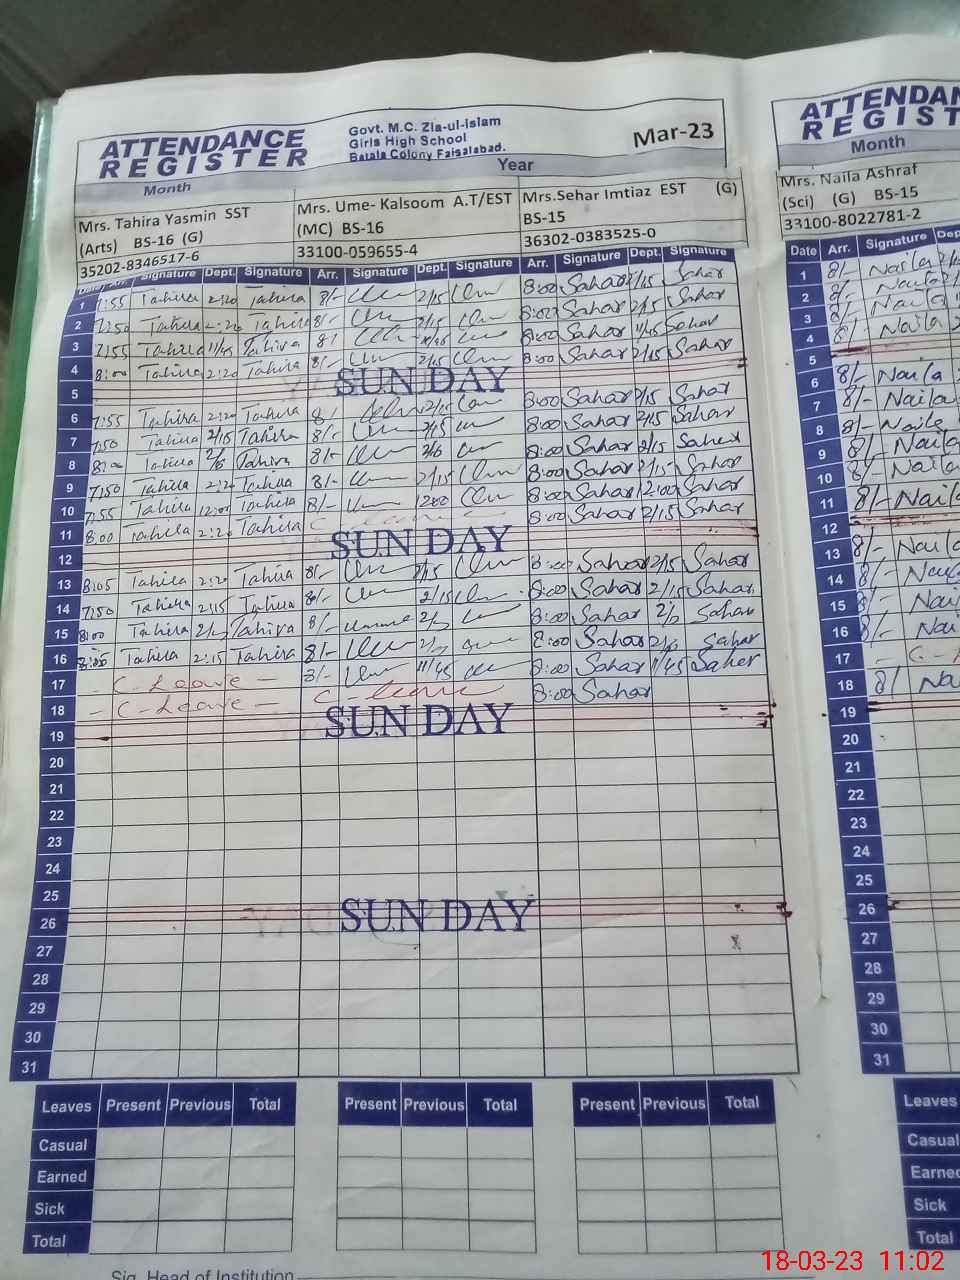 ATTENDANCE REGISTER
Govt. M.C. Zia-ul-islam
Girls High School
Batala Colony Faisalabad.
Mar-23
Month
Year
Mrs. Tahira Yasmin SST
(Arts) BS-16 (G)
35202-8346517-6
Mrs. Ume- Kalsoom A.T/EST
(MC) BS-16
33100-059655-4
Mrs.Sehar Imtiaz EST (G)
BS-15
36302-0383525-0
Date Arr. Signature Dept. Signature Arr. Signature Dept. Signature Arr. Signature Dept. Signature
1 7:55 Tahira 2:20 Tahira 8/- 2/15 8:00 Sahar 2/15 Sahar
2 7:50 Tahira 2:20 Tahira 8/- 2/15 8:00 Sahar 2/15 Sahar
3 7:55 Tahira 11/45 Tahira 8/ 8:00 Sahar 11/45 Sahar
4 8:00 Tahira 2:20 Tahira 8/- 2/15 8:00 Sahar 2/15 Sahar
5 SUN DAY
6 7:55 Tahira 2:20 Tahira 8/ 2/15 8:00 Sahar 2/15 Sahar
7 7:50 Tahira 2/15 Tahira 8/- 2/15 8:00 Sahar 2/15 Sahar
8 8:00 Tahira Tahira 8/- 8:00 Sahar 2/15 Sahar
9 7:50 Tahira 2:20 Tahira 8/- 2/15 8:00 Sahar 2/15 Sahar
10 7:55 Tahira 12:00 Tahira 8/- 1200 8:00 Sahar 12:00 Sahar
11 8:00 Tahira 2:20 Tahira C leave 8:00 Sahar 2/15 Sahar
12 SUN DAY
13 8:05 Tahira 2:20 Tahira 8/- 2/15 8:00 Sahar 2/15 Sahar
14 7:50 Tahira 2:15 Tahira 8/- 2/15 8:00 Sahar 2/15 Sahar
15 8:00 Tahira Tahira 8/- 8:00 Sahar Sahar
16 8:05 Tahira 2:15 Tahira 8/- 8:00 Sahar Sahar
17 - C-Leave - 8/- 11/45 8:00 Sahar 11/45 Sahar
18 - C-Leave - C-leave 8:00 Sahar
19 SUN DAY
20
21
22
23
24
25
26 SUN DAY
27
28
29
30
31
Leaves Present Previous Total Present Previous Total Present Previous Total
Casual
Earned
Sick
Total
Sig. Head of Institution
ATTENDAN
REGIST
Month
Mrs. Naila Ashraf
(Sci) (G) BS-15
33100-8022781-2
Date Arr. Signature Dep
1 8/- Naila
2 8/- Naila
3 8/- Naila
4 8/ Naila
5
6 8/- Naila
7 8/- Naila
8 8/- Naila
9 8/- Naila
10 8/- Naila
11 8/- Naila
12
13 8/- Naila
14 8/- Naila
15 8/- Nai
16 8/- Nai
17 - C-L
18 8/ Na
19
20
21
22
23
24
25
26
27
28
29
30
31
Leaves
Casual
Earned
Sick
Total
18-03-23 11:02